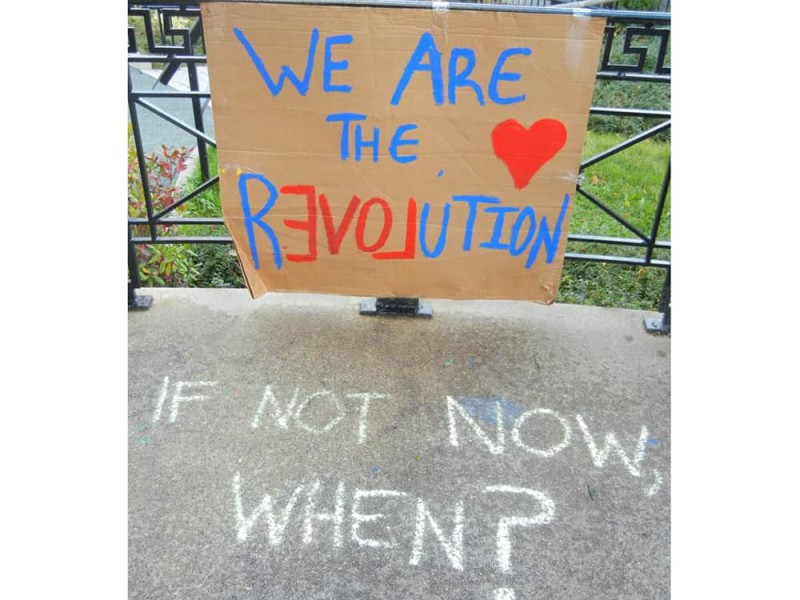 WE ARE
THE
REVOLUTION
IF NOT NOW,
WHEN?